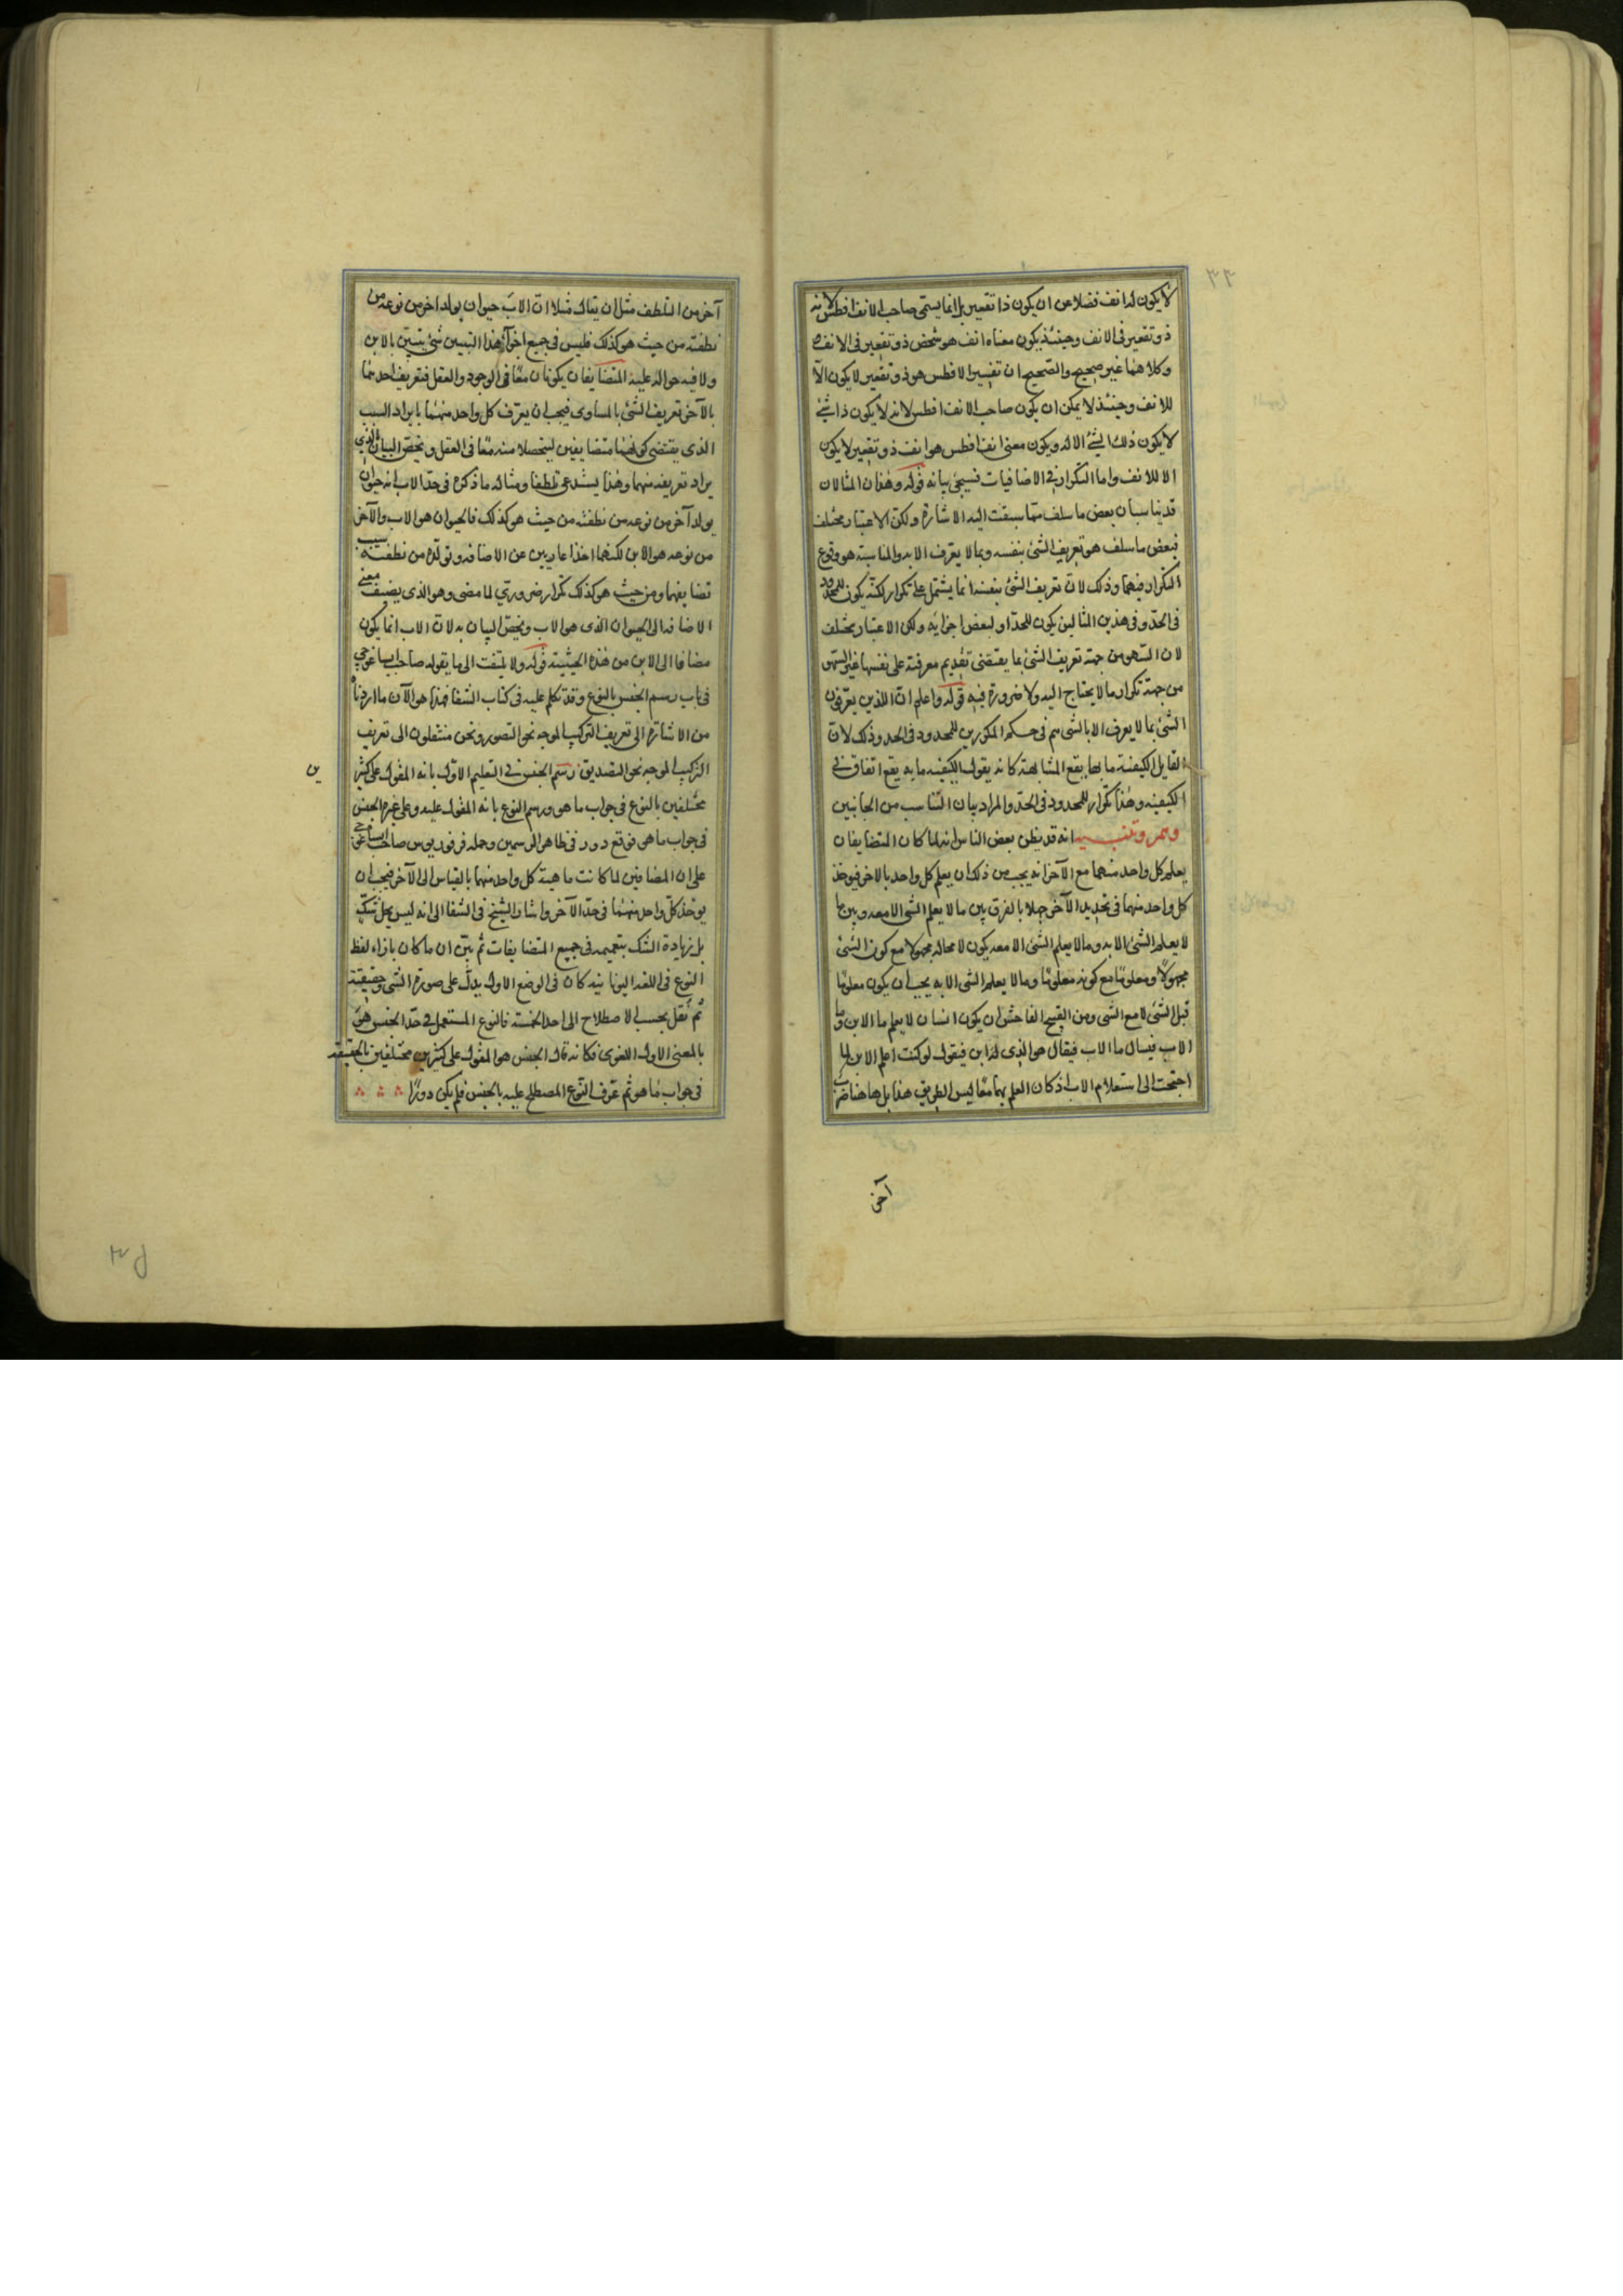 ٣٣
لا يكون له انف فضلا عن ان يكون ذا تقعير بل انما يسمى صاحب الانف افطس لانه
ذو تقعير فى الانف وحينئذ يكون معناه انف هو شخص ذو تقعير فى الانف
وكلاهما غير صحيح والصحيح ان تفسير الافطس هو ذو تقعير لا يكون الا
للانف وحينئذ لا يمكن ان يكون صاحب الانف افطس لانه لا يكون ذا شئ
لا يكون ذلك الشئ الا له ويكون معنى انف افطس هو انف ذو تقعير لا يكون
الا للانف واما التكرار فى الاضافيات فسيجئ بيانه قوله وهذان المثالان
قد يناسبان بعض ما سلف مما سبقت اليه الاشارة ولكن الاعتبار مختلف
فبعض ما سلف هو تعريف الشئ بنفسه وبما لا يعرف الا به والمناسبة هو وقوع
التكرار فيهما وذلك لان تعريف الشئ بنفسه انما يشتمل على تكرار لكنه يكون للمحدود
فى الحد وفى هذين المثالين يكون للحد او لبعض اجزائه ولكن الاعتبار مختلف
لان السهو من جهة تعريف الشئ بما يقتضى تقديم معرفته على نفسها غير السهو
من جهة تكرار ما لا يحتاج اليه ولا ضرورة فيه قوله واعلم ان الذين يعرفون
الشئ بما لا يعرف الا بالشئ هم فى حكم المكررين للمحدود فى الحد وذلك لان
القايل الكيفية ما بها يقع المشابهة كانه يقول الكيفية ما به يقع اتفاق فى
الكيفية وهذا تكرار للمحدود فى الحد والمراد بيان التناسب من الجانبين
وهم وتنبيه انه قد يظن بعض الناس انه لما كان المتضايفان
يعلم كل واحد منهما مع الآخر انه يجب من ذلك ان يعلم كل واحد بالاخر فيوخذ
كل واحد منهما فى تحديد الآخر جهلا بالفرق بين ما لا يعلم الشئ الا معه وبين ما
لا يعلم الشئ الا به وما لا يعلم الشئ الا معه يكون لا محالة مجهولا مع كون الشئ
مجهولا ومعلوما مع كونه معلوما وما لا يعلم الشئ الا به يجب ان يكون معلوما
قبل الشئ لا مع الشئ ومن القبيح الفاحش ان يكون انسان لا يعلم ما الابن وما
الاب فيسال ما الاب فيقال هو الذى له ابن فيقول لو كنت اعلم الابن لما
احتجت الى استعلام الاب اذ كان العلم بهما معا ليس الطريق هذا بل هاهنا ضرب
آخر
آخر من التلطف مثل ان يقال مثلا ان الاب حيوان يولد اخر من نوعه من
نطفته من حيث هو كذلك فليس فى جميع اجزاء هذا التبيين شئ يتبين بالابن
ولا فيه حوالة عليه المتضايفان يكونان معا فى الوجود والعقل فتعريف احدهما
بالآخر تعريف الشئ بالمساوى فيجب ان يعرف كل واحد منهما بايراد السبب
الذى يقتضى كونهما متضايفين ليتحصلا منه معا فى العقل ويخص البيان بالذى
يراد تعريفه منهما وهذا يستدعى تلطفا ومثاله ما ذكره فى حد الاب انه حيوان
يولد آخر من نوعه من نطفته من حيث هو كذلك فالحيوان هو الاب والآخر
من نوعه هو الابن لكنهما اخذا عاريين عن الاضافة وتولده من نطفته سبب
تضايفهما ومن حيث هو كذلك تكرار ضرورى لما مضى وهو الذى يضيف معنى
الاضافة الى الحيوان الذى هو الاب ويخص البيان به لان الاب انما يكون
مضافا الى الابن من هذه الحيثية قوله ولا يلتفت الى ما يقوله صاحب ايساغوجى
فى باب رسم الجنس بالنوع وقد تكلم عليه فى كتاب الشفا فهذا هو الآن ما اردناه
من الاشارة الى تعريف التركيب الموجه نحو التصور ونحن منتقلون الى تعريف
التركيب الموجه نحو التصديق رسم الجنس فى التعليم الاول بانه المقول على كثيرين
مختلفين بالنوع فى جواب ما هو ورسم النوع بانه المقول عليه وعلى غيره الجنس
فى جواب ما هو فوقع دور فى ظاهر الرسمين وحمله فرفوريوس صاحب ايساغوجى
على ان المضافين لما كانت ماهية كل واحد منهما بالقياس الى الآخر فيجب ان
يوخذ كل واحد منهما فى حد الآخر واشار الشيخ فى الشفا الى انه ليس بحل شك
بل زيادة الشك بتعميمه فى جميع المتضايفات ثم بين ان ما كان بازاء لفظ
النوع فى اللغة اليونانية كان فى الوضع الاول يدل على صورة الشئ وحقيقته
ثم نقل بحسب الاصطلاح الى احد الخمسة فالنوع المستعمل فى حد الجنس هو
بالمعنى الاول اللغوى فكانه قال الجنس هو المقول على كثيرين مختلفين بالحقيقة
فى جواب ما هو ثم عرف النوع المصطلح عليه بالجنس فلم يكن دورا